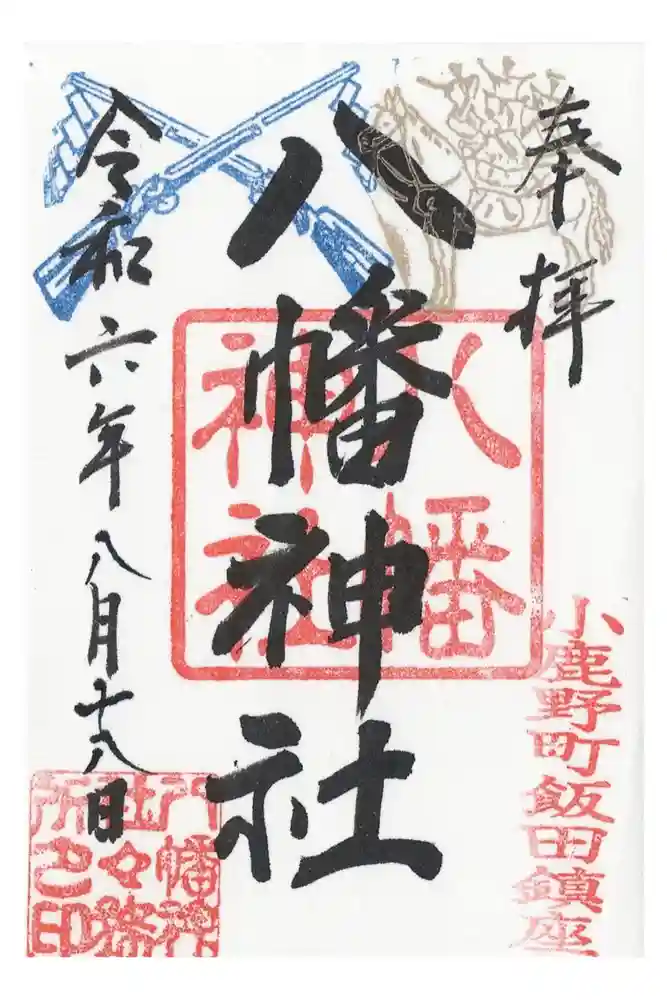 奉拝
八幡神社
八幡神社
小鹿野町飯田鎮座
令和六年八月十八日
八幡神社社務所之印